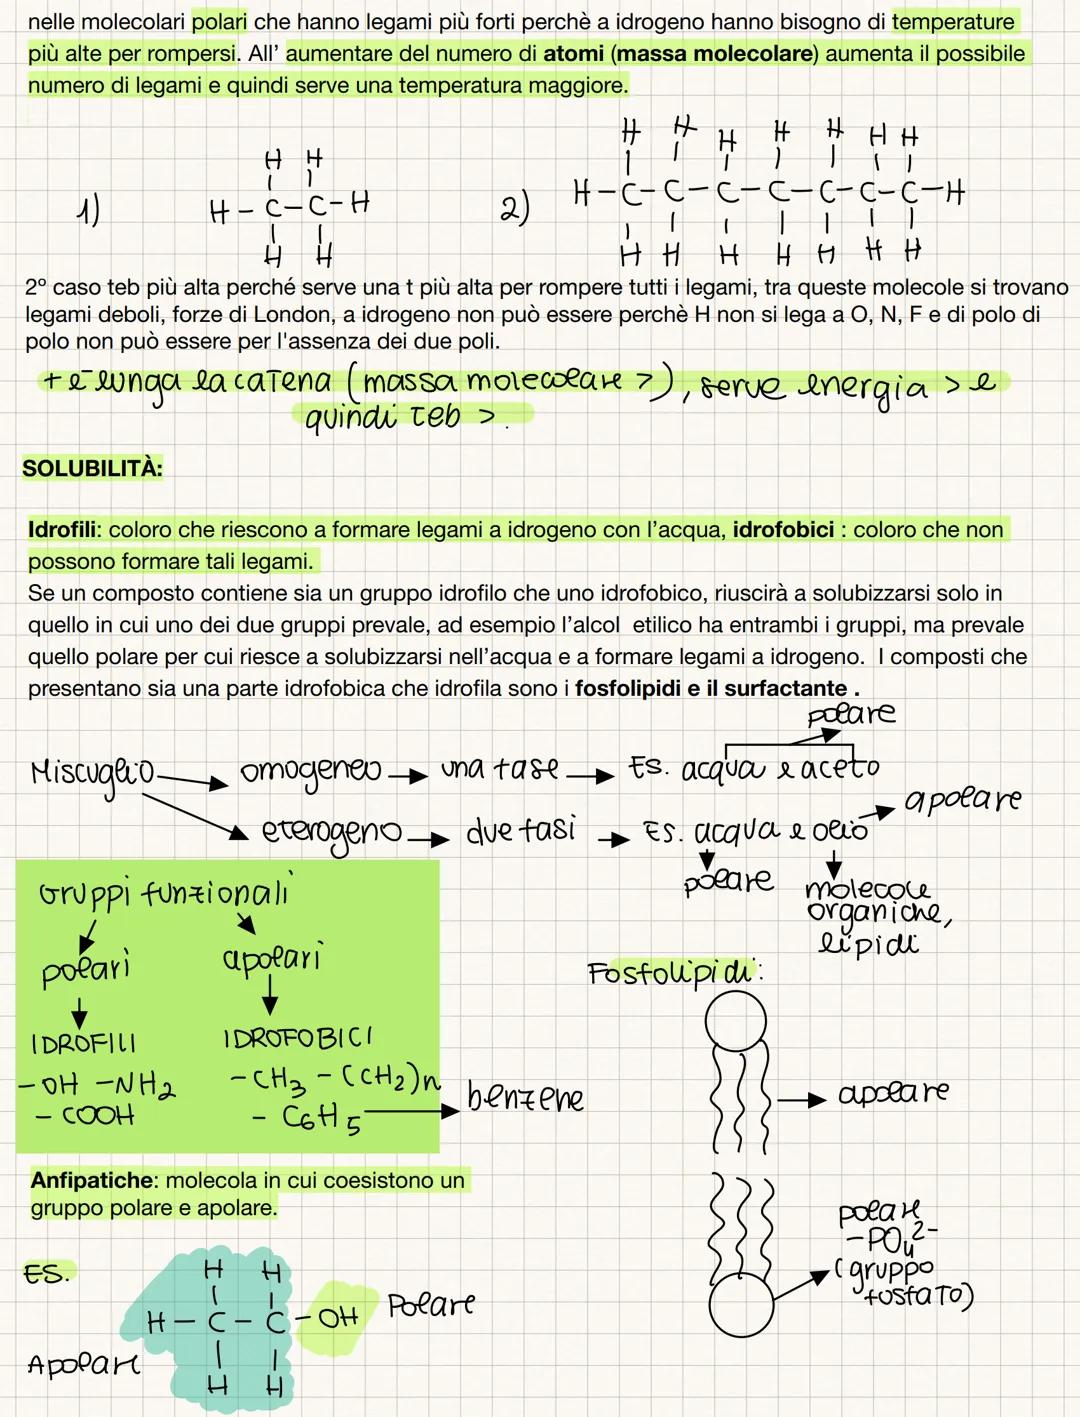 nelle molecolari polari che hanno legami più forti perchè a idrogeno hanno bisogno di temperature
più alte per rompersi. All' aumentare del numero di atomi (massa molecolare) aumenta il possibile
numero di legami e quindi serve una temperatura maggiore.
1)
H H
H - C - C - H
H H
2)
H H H H H H H
H - C - C - C - C - C - C - C - H
H H H H H H H
2º caso teb più alta perché serve una t più alta per rompere tutti i legami, tra queste molecole si trovano
legami deboli, forze di London, a idrogeno non può essere perchè H non si lega a O, N, F e di polo di
polo non può essere per l'assenza dei due poli.
+ è lunga la catena (massa molecolare >), serve energia > e
quindi teb >.
SOLUBILITÀ:
Idrofili: coloro che riescono a formare legami a idrogeno con l'acqua, idrofobici : coloro che non
possono formare tali legami.
Se un composto contiene sia un gruppo idrofilo che uno idrofobico, riuscirà a solubizzarsi solo in
quello in cui uno dei due gruppi prevale, ad esempio l'alcol etilico ha entrambi i gruppi, ma prevale
quello polare per cui riesce a solubizzarsi nell'acqua e a formare legami a idrogeno. I composti che
presentano sia una parte idrofobica che idrofila sono i fosfolipidi e il surfactante .
polare
Miscuglio → omogeneo → una fase → Es. acqua e aceto
apolare
eterogeno → due fasi → Es. acqua e olio
polare
molecole
organiche,
lipidi
Gruppi funzionali
polari apolari
IDROFILI IDROFOBICI
-OH -NH2 -CH3 -(CH2)n
-COOH - C6H5 → benzene
Fosfolipidi:
apolare
polare
-PO4 2-
(gruppo
fosfato)
Anfipatiche: molecola in cui coesistono un
gruppo polare e apolare.
ES.
H H
H - C - C - OH Polare
Apolare
H H